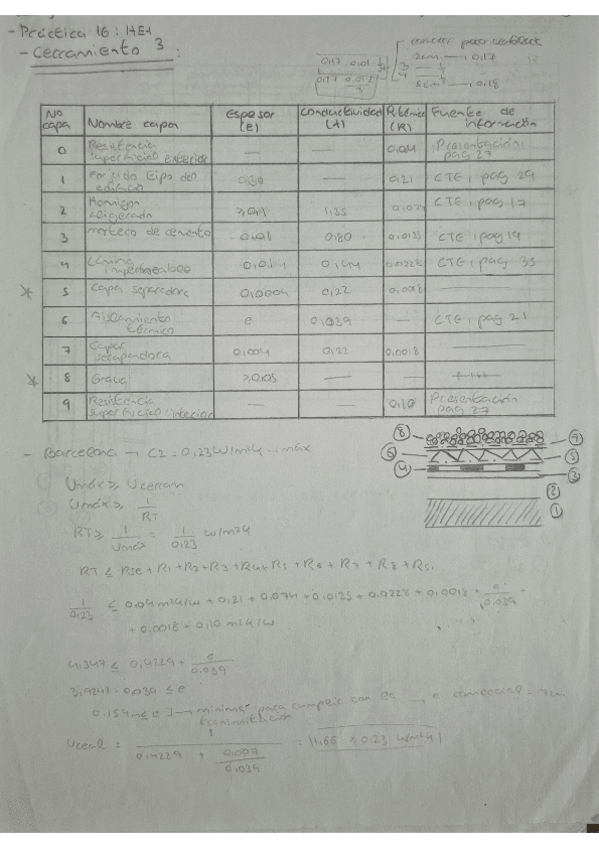 - Práctica 16: HE1
- Cerramiento 3:
2cm → 0,17
5cm → 0,18
Nº capa | Nombre capa | Espesor (e) | Conductividad (λ) | R.térmica (R) | Fuente de información
0 | Resistencia superficial exterior | — | — | 0,04 | Presentación, pag 27
1 | Forjado tipo del edificio | — | 0,21 | CTE, pag 29
2 | Hormigon aligerado | 1,35 | CTE, pag 17
3 | mortero de cemento | 0,01 | 0,80 | 0,0125 | CTE, pag 19
4 | Lámina impermeable | 0,0228 | CTE, pag 35
* 5 | Capa separadora | 0,0004 | 0,22 | 0,0018 | —
6 | Aislamiento térmico | e | 0,039 | — | CTE, pag 21
7 | Capa separadora | 0,004 | 0,22 | 0,0018 | —
* 8 | Grava | ≥0,05 | — | —
9 | Resistencia superficial interior | — | — | 0,10 | Presentación pag 27
8 7
6 5
4 3
2
1
- Barcelona → C2 = 0,23 W/m²K → máx
Umáx ≥ Ucerram
Umáx ≥ 1/RT
RT ≥ 1/Umáx = 1/0,23 W/m²K
RT ≤ Rse + R1 + R2 + R3 + R4 + R5 + R6 + R7 + R8 + Rsi
1/0,23 ≤ 0,04 m²K/W + 0,21 + 0,074 + 0,0125 + 0,0228 + 0,0018 + e/0,039 +
+ 0,0018 + 0,10 m²K/W
4,347 ≤ 0,4229 + e/0,039
3,9241 · 0,039 ≤ e
0,154m ≤ e → mínimo para cumplir con la → e comercial = 7cm
Ucerr = 1 / (0,4229 + 0,007/0,039) = 1,66 > 0,23 W/m²K